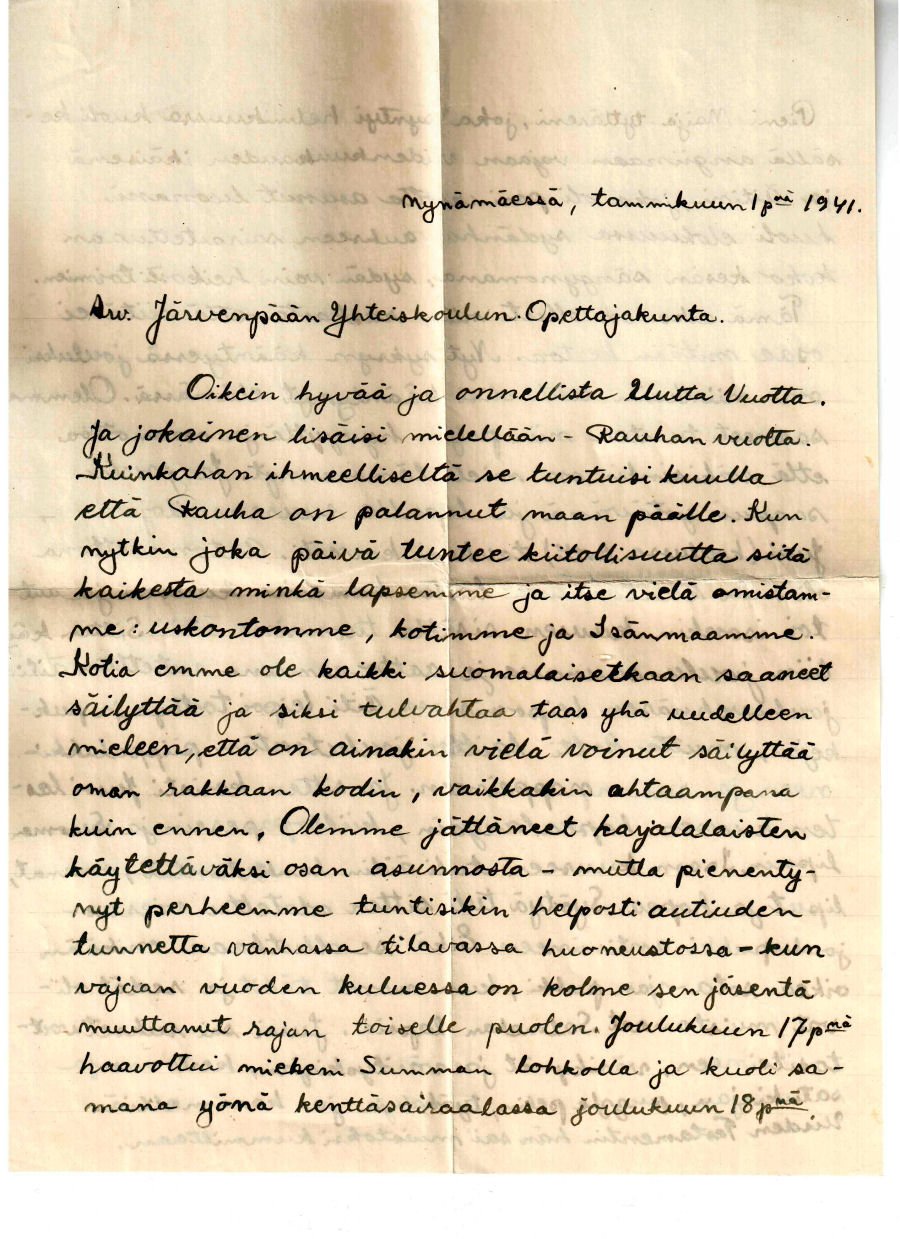 Nynämäessä, tammikuun 1 pnä 1941.
Arv. Järvenpään Yhteiskoulun Opettajakunta.
Oikein hyvää ja onnellista Uutta Vuotta.
Ja jokainen lisäisi mielellään - Rauhan vuotta.
Kuinkahan ihmeelliseltä se tuntuisi kuulla
että Rauha on palannut maan päälle. Kun
nytkin joka päivä tuntee kiitollisuutta siitä
kaikesta minkä lapsemme ja itse vielä omistam-
me: uskontomme, kotimme ja Isänmaamme.
Kotia emme ole kaikki suomalaisetkaan saaneet
säilyttää ja siksi tulvahtaa taas yhä uudelleen
mieleen, että on ainakin vielä voinut säilyttää
oman rakkaan kodin, vaikkakin ahtaampana
kuin ennen. Olemme jättäneet karjalalaisten
käytettäväksi osan asunnosta - mutta pienenty-
nyt perheemme tuntisikin helposti autiuden
tunnetta vanhassa tilavassa huoneustossa - kun
vajaan vuoden kuluessa on kolme sen jäsentä
muuttanut rajan toiselle puolen. Joulukuun 17 pnä
haavottui mieheni Summan lohkolla ja kuoli sa-
mana yönä kenttäsairaalassa joulukuun 18 pnä.